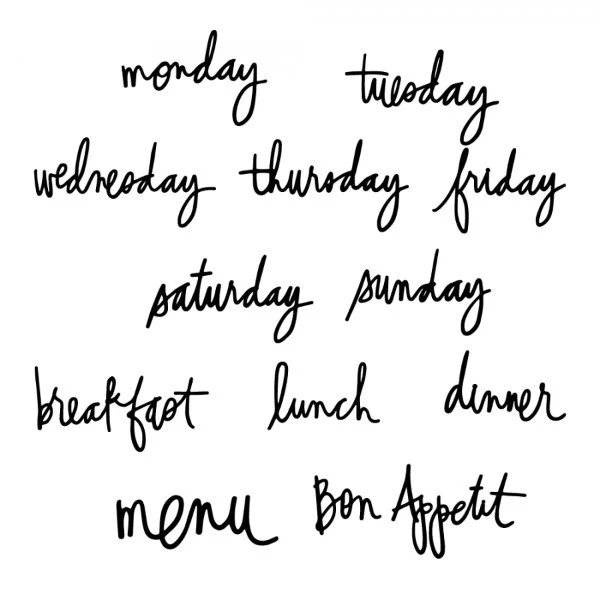 monday tuesday
wednesday thursday friday
saturday sunday
breakfast lunch dinner
menu Bon Appetit